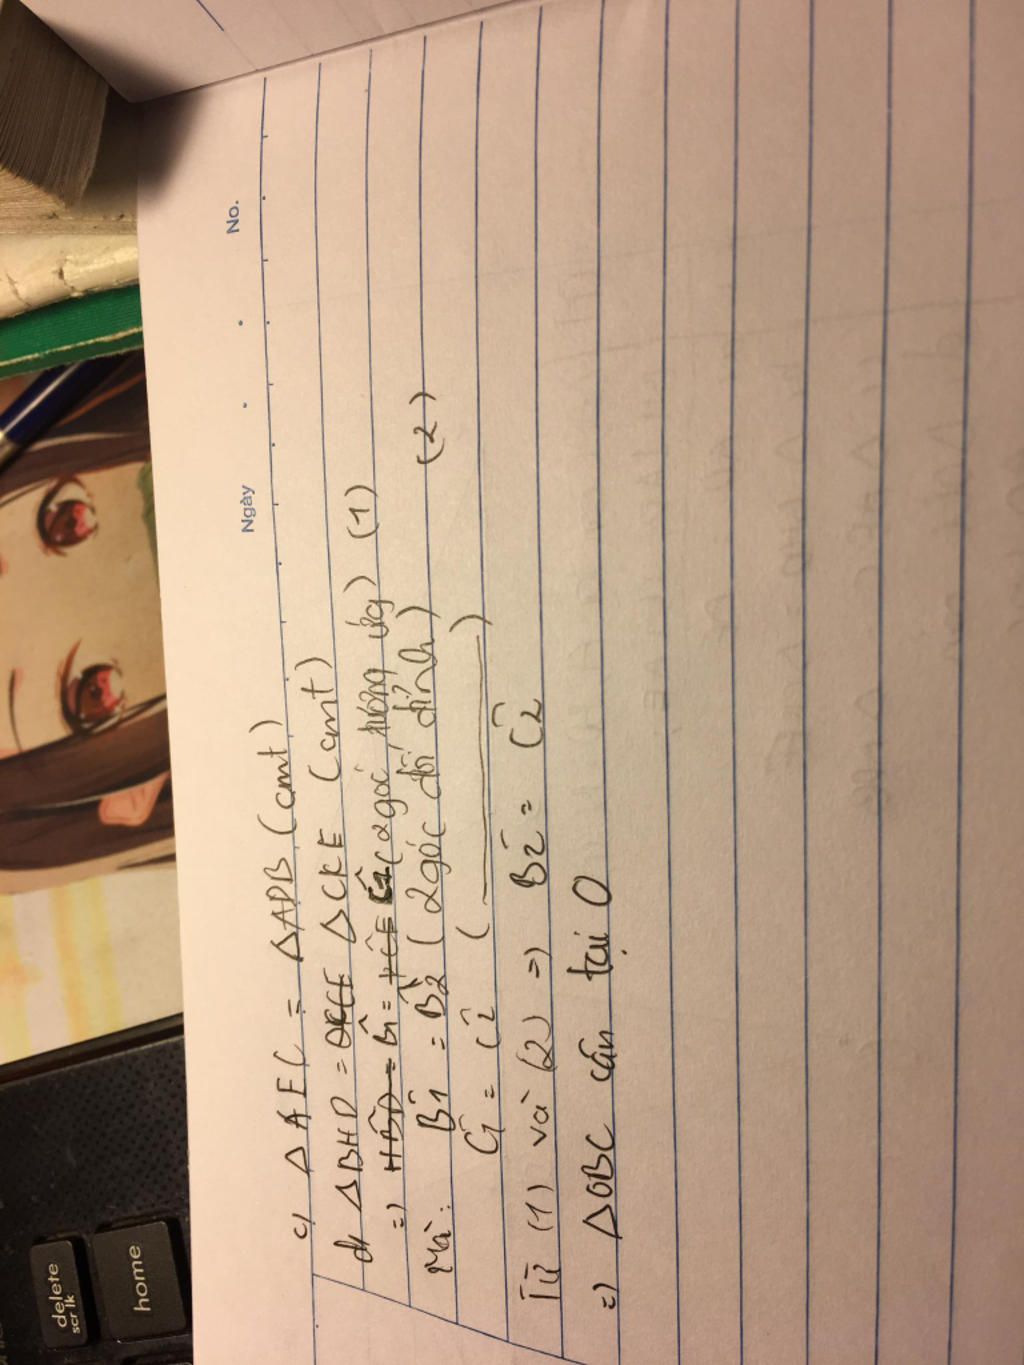 Ngày No.
c) Δ AEC = Δ ADB (cmt)
d) Δ BHD = Δ CKE (cmt)
=) B̂1 = Ĉ1 (2 góc tương ứng) (1)
Mà: B̂1 = B̂2 (2 góc đối đỉnh) (2)
Ĉ1 = Ĉ2 ( ——— )
Từ (1) và (2) =) B̂2 = Ĉ2
=) Δ OBC cân tại O
delete
scr lk
home